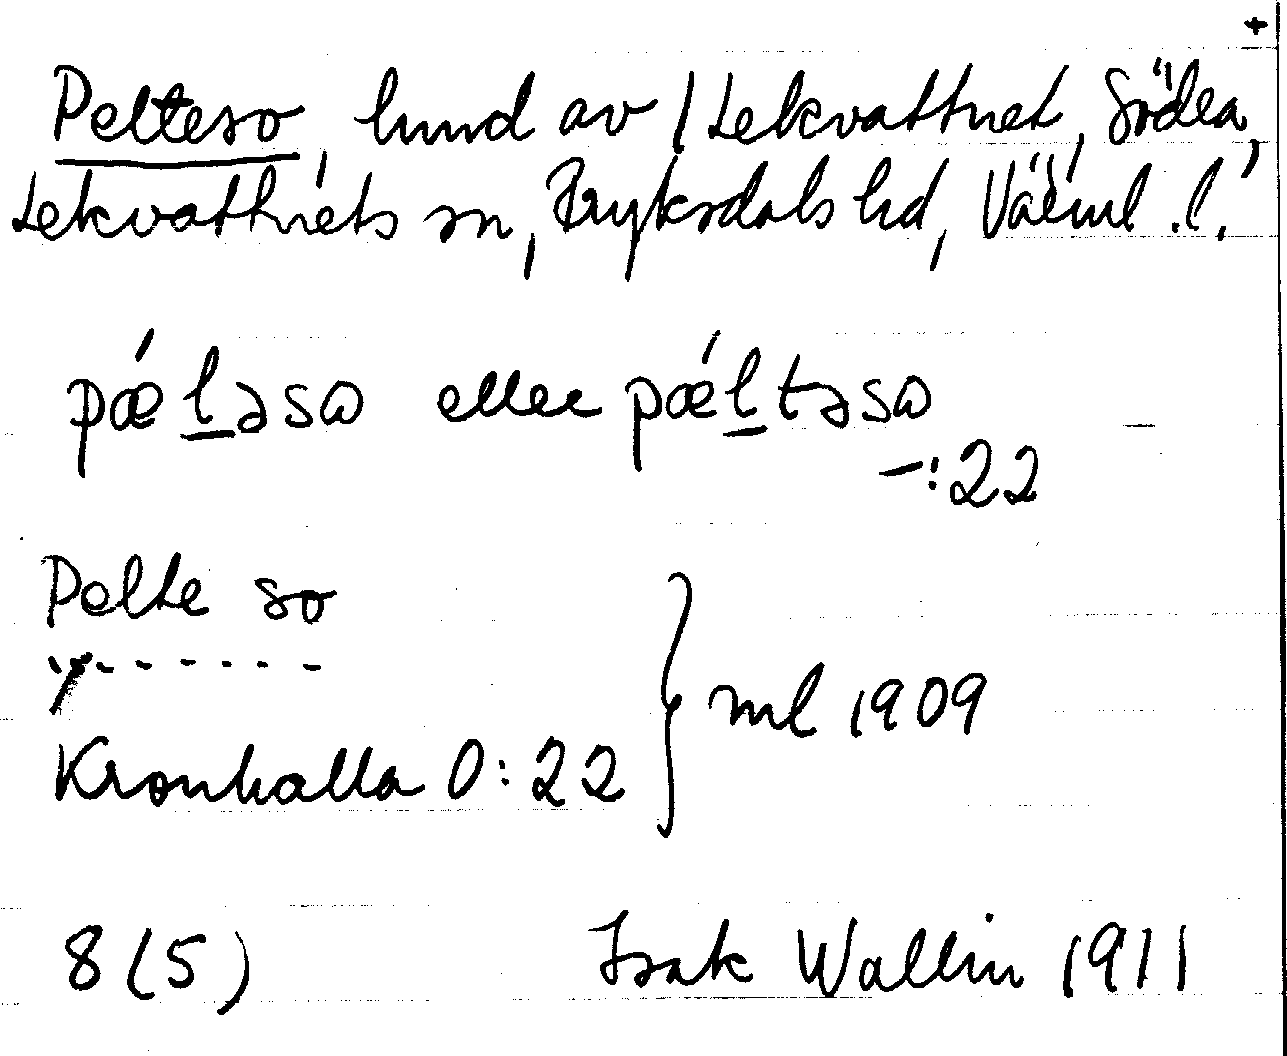 +
Pelteso, hmd av 1 Lekvattnet, Södra,
Lekvattnets sn, Fryksdals hd, Värml. l.
pǽl̲əsɷ eller pǽl̲təsɷ
–:22
Pelte so
Kronkalla 0:22 } ml 1909
8 (5) Isak Wallin 1911